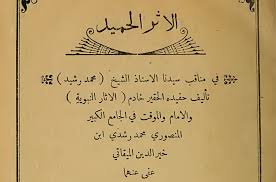 الاثر الحميد
في مناقب سيدنا الاستاذ الشيخ ( محمد رشيد )
تأليف حفيده الحقير خادم ( الاثار النبوية )
والامام والموقت في الجامع الكبير
المنصوري محمد رشدي ابن
خير الدين الميقاتي
عفى عنهما